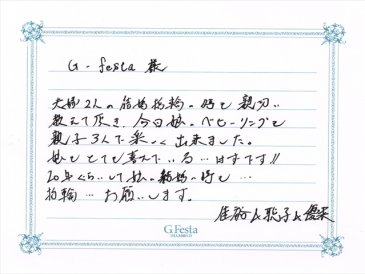 G-festa 様
夫婦2人の結婚指輪の時も親切に
教えて頂き、今回娘のベビーリングも
親子3人で楽しく出来ました。
娘もとても喜んでいる…はずです!!
20年ぐらいして娘の結婚の時も…
指輪…お願いします。
佳祐&聡子&優宋
G.Festa